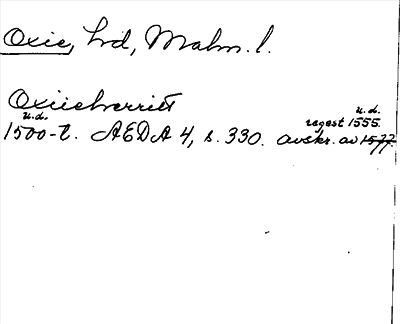 Oxie, hd, Malm. l.
Oxiieherritt
u.d.
1500-t. AEDA 4, s. 330. avskr. av 1577.
u.d.
regest 1555.